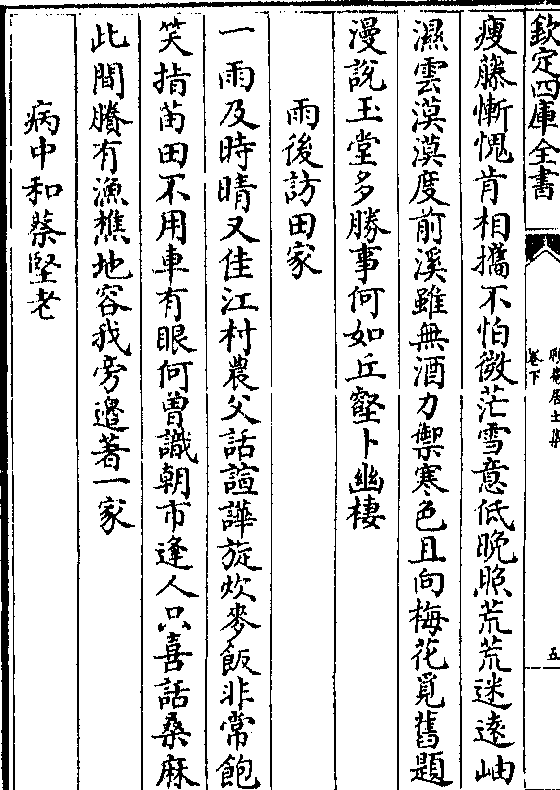 欽定四庫全書
卷下
五
瘦藤慚愧肯相攜不怕微茫雪意低晚照荒荒迷逺岫
濕雲漠漠度前溪雖無酒力禦寒色且向梅花覓舊題
漫說玉堂多勝事何如丘壑卜幽棲
雨後訪田家
一雨及時晴又佳江村農父話諠譁旋炊麥飯非常飽
笑指苗田不用車有眼何曽識朝市逢人只喜話桑麻
此間賸有漁樵地容我旁邊著一家
病中和蔡堅老